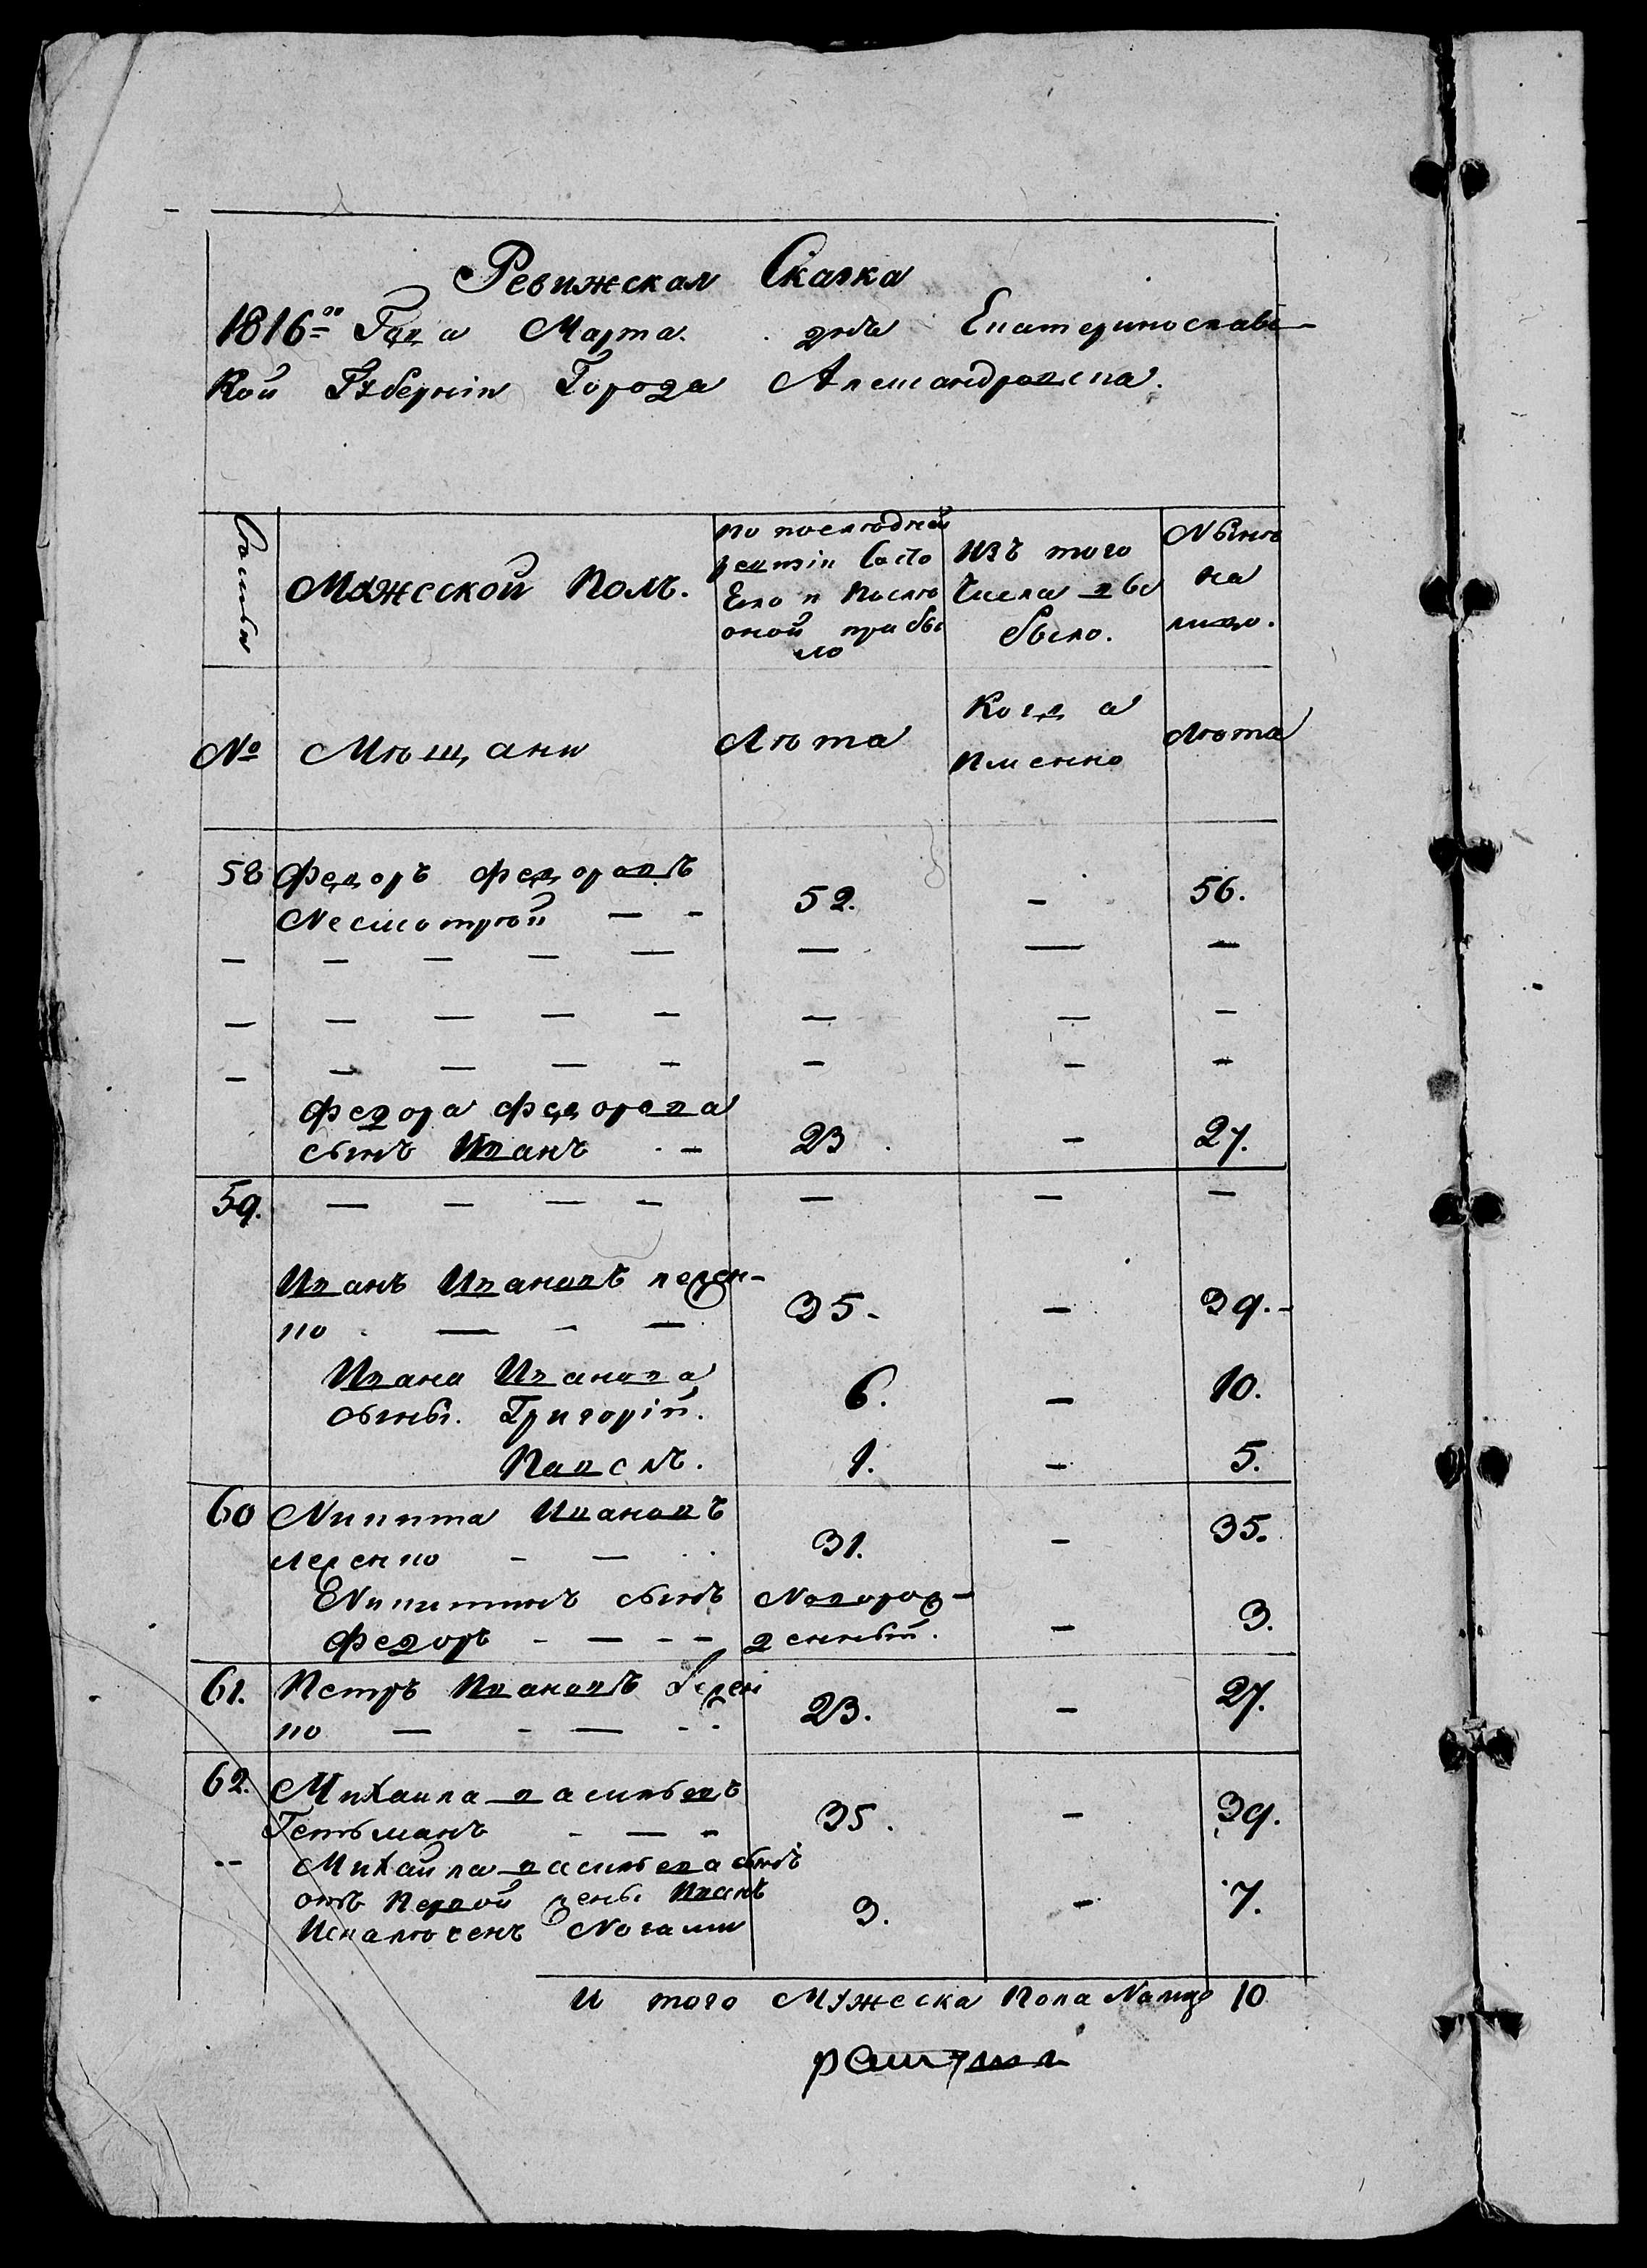 Ревижская Сказка
1816го Года Марта. дня Екатеринославс-
кой Губернін Города Александровска.
Семьи
Мужеской Полъ.
по послѣдней
ревизіи Состо
Ело и послѣ
оной прибы
ло
Изъ того
Числа вы
было.
Нынѣ
на
лицо.
№
Мѣщани
Лѣта
Когда
имянно
Лѣта
58 Федоръ Федоровъ
Несмотрѣй — - 52. - 56.
— — — — — — — —
— — — — — — — —
— — — — - - - -
Федора Федорова
сынъ Иванъ - - 23 - 27.
59. — — — - — — —
Иванъ Ивановъ лерен-
ко - — - — 35. - 39.-
Ивана Иванова
сыны. Григорій. 6. - 10.
Павелъ. 1. - 5.
60 Никита Ивановъ
леренко - — 31. - 35.
Никитинъ сынъ Новорож-
Федоръ - — - - денный. - 3.
61. Петръ Ивановъ Лерен
ко — - — - - 23. - 27.
62. Михаила васильевъ
Гетьманъ - — - 35. - 39.
-- Михайла васильева сынъ
отъ Первой жены Иванъ
Искалѣченъ Ногами 3. - 7.
И того Мужеска Пола Налицо 10